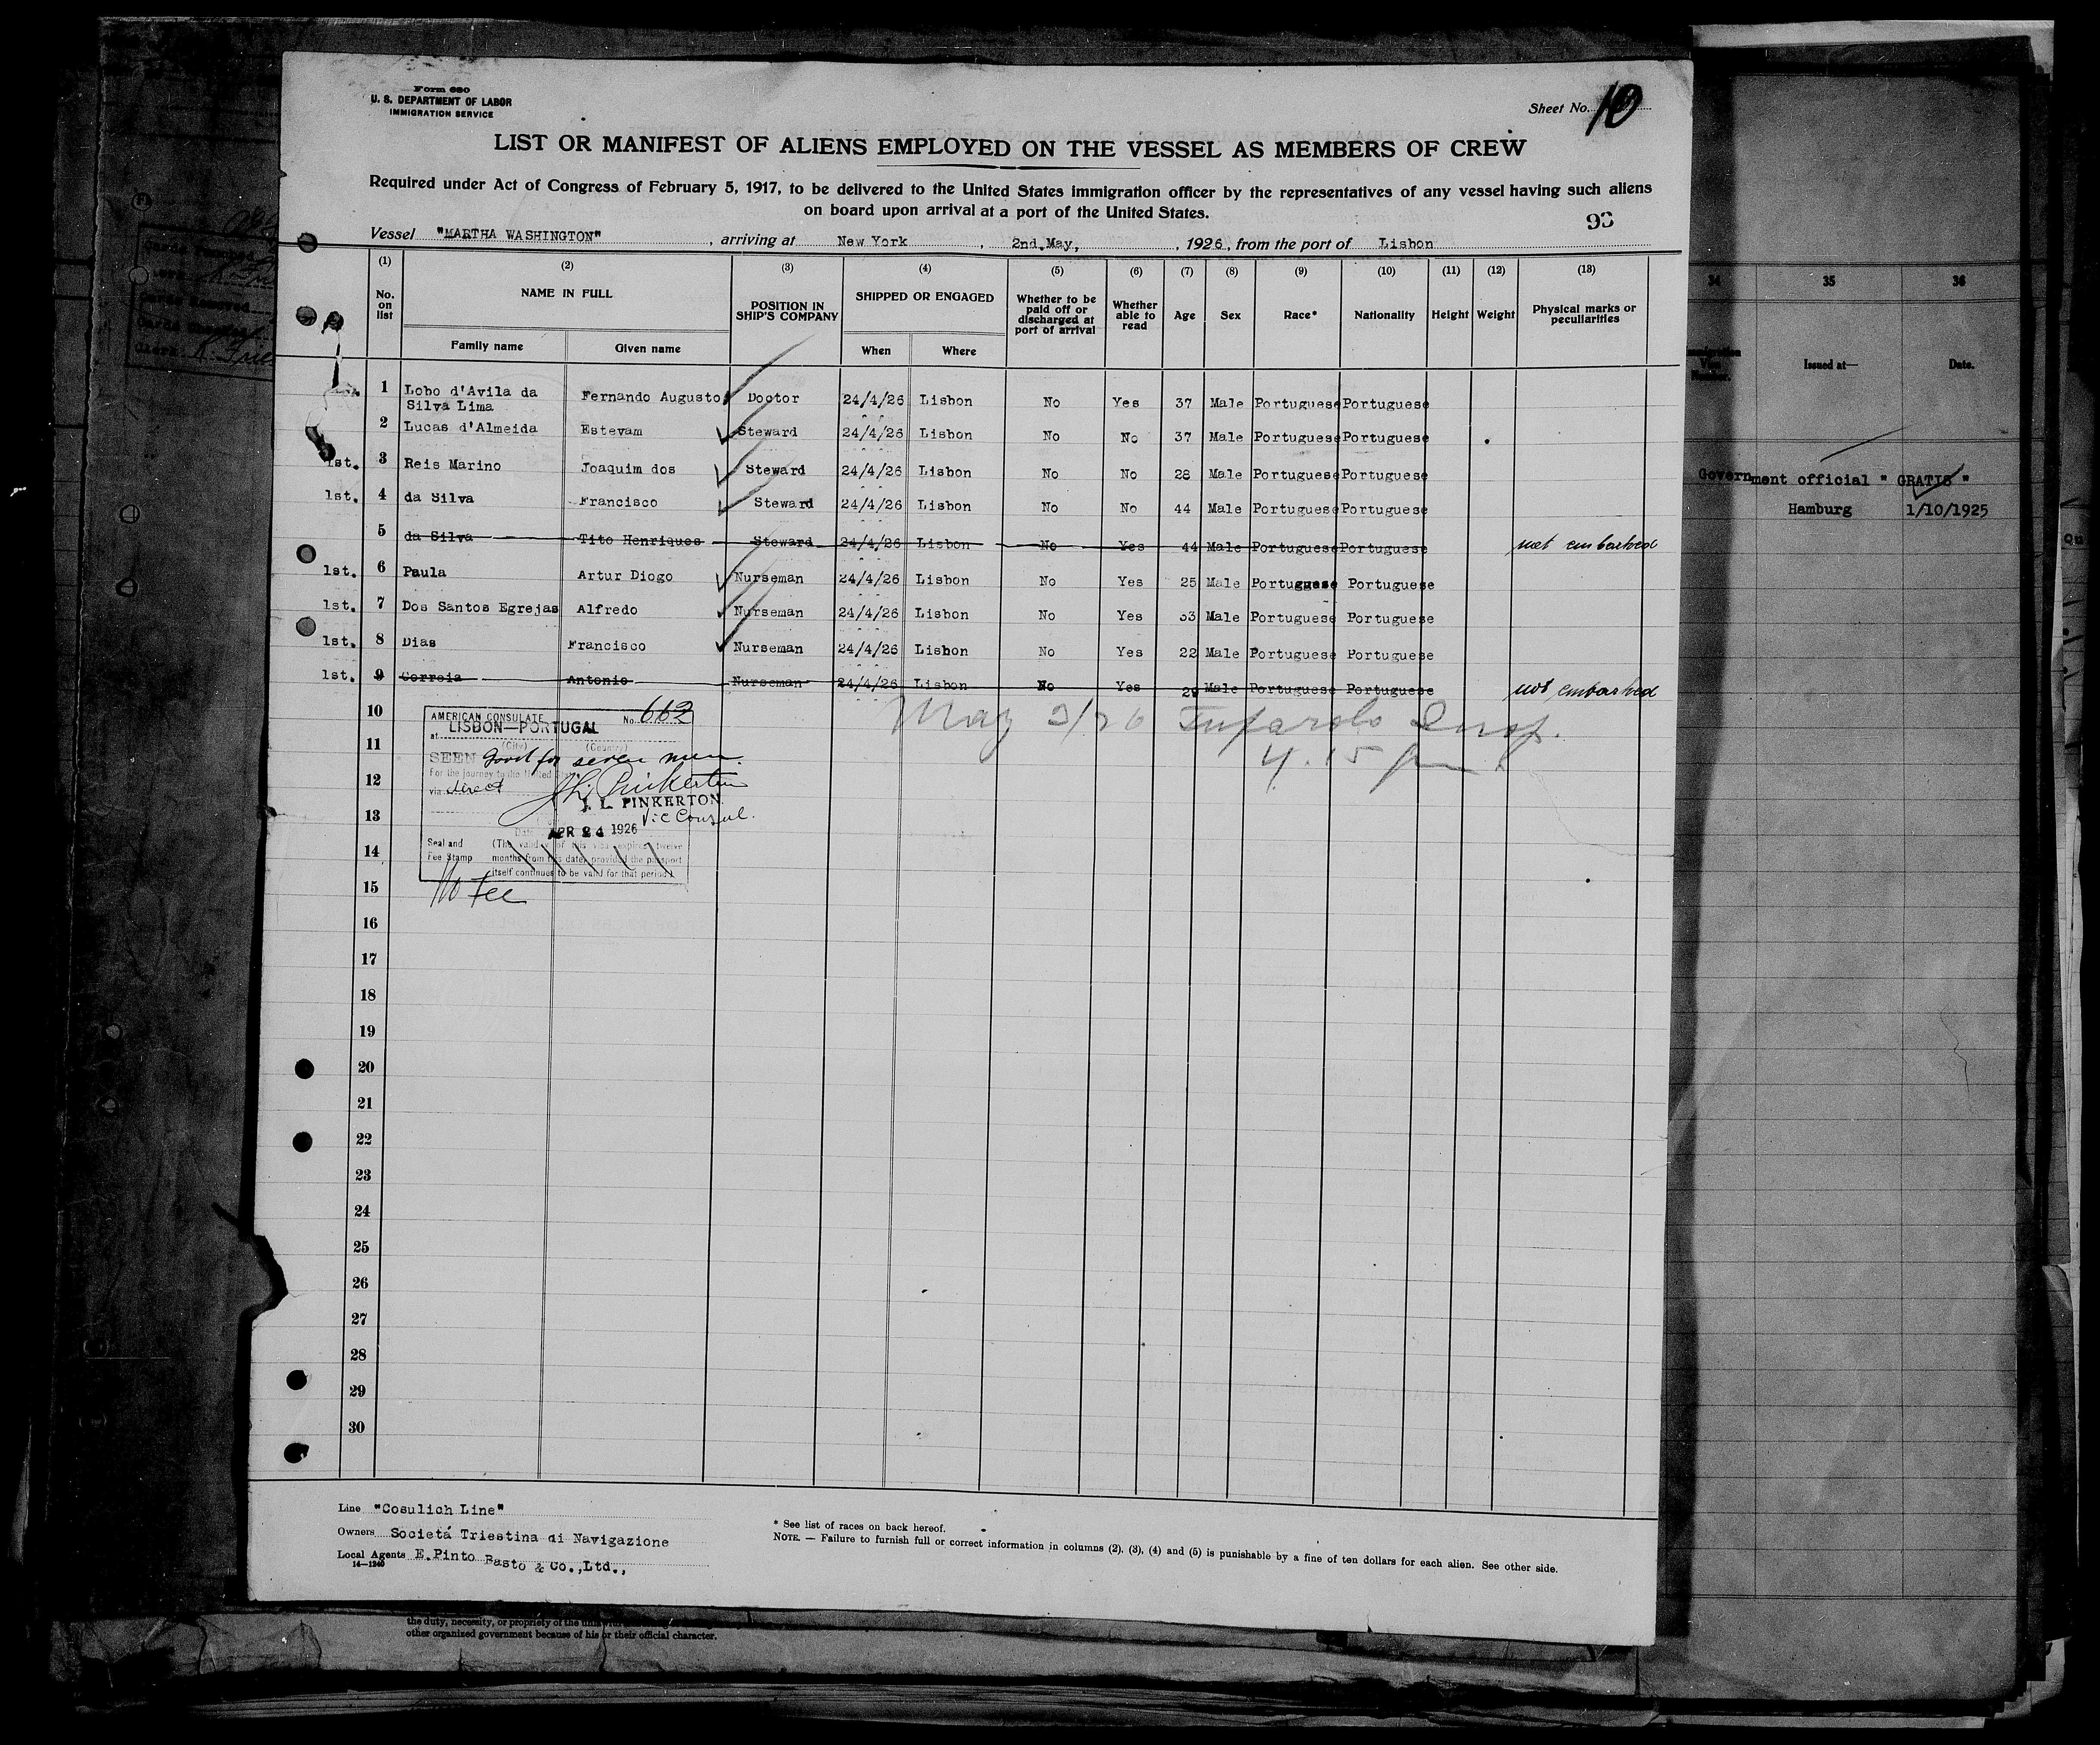 Form 680
U. S. DEPARTMENT OF LABOR
IMMIGRATION SERVICE
Sheet No. 10
LIST OR MANIFEST OF ALIENS EMPLOYED ON THE VESSEL AS MEMBERS OF CREW
Required under Act of Congress of February 5, 1917, to be delivered to the United States immigration officer by the representatives of any vessel having such aliens
on board upon arrival at a port of the United States.
93
Vessel "MARTHA WASHINGTON", arriving at New York, 2nd.May, 1926, from the port of Lisbon
(1) (2) (3) (4) (5) (6) (7) (8) (9) (10) (11) (12) (13)
No. on list NAME IN FULL Family name Given name POSITION IN SHIP'S COMPANY SHIPPED OR ENGAGED When Where Whether to be paid off or discharged at port of arrival Whether able to read Age Sex Race* Nationality Height Weight Physical marks or peculiarities
1 Lobo d'Avila da Silva Lima Fernando Augusto Doctor 24/4/26 Lisbon No Yes 37 Male Portuguese Portuguese
2 Lucas d'Almeida Estevam Steward 24/4/26 Lisbon No No 37 Male Portuguese Portuguese
1st. 3 Reis Marino Joaquim dos Steward 24/4/26 Lisbon No No 28 Male Portuguese Portuguese
1st. 4 da Silva Francisco Steward 24/4/26 Lisbon No No 44 Male Portuguese Portuguese
5 da Silva Tito Henriques Steward 24/4/26 Lisbon No Yes 44 Male Portuguese Portuguese not embarked
1st. 6 Paula Artur Diogo Nurseman 24/4/26 Lisbon No Yes 25 Male Portuguese Portuguese
1st. 7 Dos Santos Egrejas Alfredo Nurseman 24/4/26 Lisbon No Yes 33 Male Portuguese Portuguese
1st. 8 Dias Francisco Nurseman 24/4/26 Lisbon No Yes 22 Male Portuguese Portuguese
1st. 9 Correia Antonio Nurseman 24/4/26 Lisbon No Yes 29 Male Portuguese Portuguese not embarked
10
May 2/26 Insp.
4.15 pm
11
12
13
14
15
16
17
18
19
20
21
22
23
24
25
26
27
28
29
30
AMERICAN CONSULATE No. 662
at LISBON—PORTUGAL
(City) (Country)
SEEN Good for seven men.
For the journey to the United States
via direct J L Pinkerton
J. L. PINKERTON
Vic Consul.
Date APR 24 1926
Seal and Fee Stamp
(The validity of this visa expires twelve
months from this date, provided the passport
itself continues to be valid for that period.)
No Fee
Line "Cosulich Line"
Owners Societá Triestina di Navigazione
Local Agents E.Pinto Basto & Co.,Ltd.,
14—1240
* See list of races on back hereof.
NOTE. — Failure to furnish full or correct information in columns (2), (3), (4) and (5) is punishable by a fine of ten dollars for each alien. See other side.
34 35 36
Visa Number. Issued at— Date.
Government official " GRATIS "
Hamburg 1/10/1925
the duty, necessity, or propriety of the
other organized government because of his or their official character.